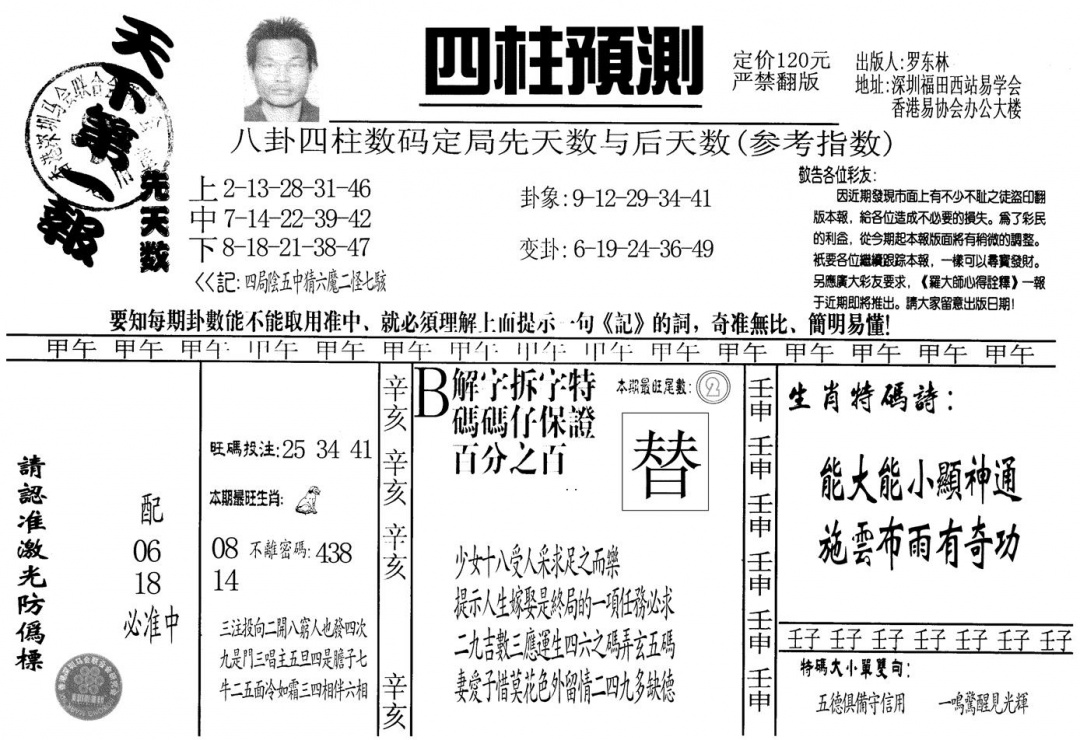 天下第一報
四柱預測
定价120元
严禁翻版
出版人:罗东林
地址:深圳福田西站易学会
香港易协会办公大楼
八卦四柱数码定局先天数与后天数(参考指数)
先天数
上 2-13-28-31-46
中 7-14-22-39-42
下 8-18-21-38-47
卦象:9-12-29-34-41
变卦:6-19-24-36-49
<<記:四局陰五中猜六魔二怪七駭
敬告各位彩友:
因近期發現市面上有不少不耻之徒盗印翻
版本報,給各位造成不必要的損失。爲了彩民
的利益,從今期起本報版面將有稍微的調整。
衹要各位繼續跟踪本報,一樣可以尋寶發財。
另應廣大彩友要求,《羅大師心得詮釋》一報
于近期即將推出。請大家留意出版日期!
要知每期卦數能不能取用准中、就必須理解上面提示一句《記》的詞,奇准無比、簡明易懂!
甲午 甲午 甲午 甲午 甲午 甲午 甲午 甲午 甲午 甲午 甲午 甲午 甲午 甲午 甲午
請認准激光防僞標
配
06
18
必准中
旺碼投注:25 34 41
本期最旺生肖:
08 不離密碼:438
14
三注投向二開八窮人也發四次
九是門三唱主五旦四是膽子七
牛二五面冷如霜三四相伴六相
辛亥
辛亥
辛亥
辛亥
B 解字拆字特
碼碼仔保證
百分之百
本期最旺尾數:2
替
少女十八受人采求足之而樂
提示人生嫁娶是終局的一項任務必求
二九吉數三應運生四六之碼弄玄五碼
妻愛子惜莫花色外留情二四九多缺德
壬申
壬申
壬申
壬申
壬申
壬申
生肖特碼詩:
能大能小顯神通
施雲布雨有奇功
壬子 壬子 壬子 壬子 壬子 壬子 壬子
特碼大小單雙句:
五德俱備守信用 一鳴驚醒見光輝